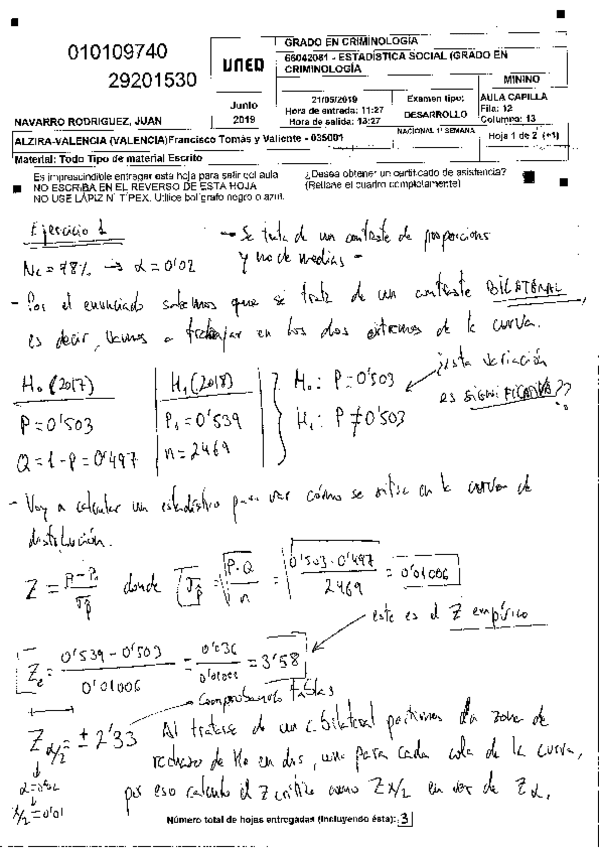 010109740
29201530
UNED
Junio
2019
GRADO EN CRIMINOLOGÍA
66042081 - ESTADÍSTICA SOCIAL (GRADO EN CRIMINOLOGÍA
MININO
21/05/2019
Hora de entrada: 11:27
Hora de salida: 13:27
Examen tipo:
DESARROLLO
AULA CAPILLA
Fila: 12
Columna: 13
NAVARRO RODRIGUEZ, JUAN
ALZIRA-VALENCIA (VALENCIA)Francisco Tomás y Valiente - 035001
NACIONAL 1ª SEMANA
Hoja 1 de 2 (+1)
Material: Todo Tipo de material Escrito
Es imprescindible entregar esta hoja para salir del aula
NO ESCRIBA EN EL REVERSO DE ESTA HOJA
NO USE LÁPIZ NI TIPEX. Utilice bolígrafo negro o azul.
¿Desea obtener un certificado de asistencia?
(Rellene el cuadro completamente)
Ejercicio 1
- Se trata de un contraste de proporciones
y no de medias -
Nc = 98% → α = 0'02
- Por el enunciado sabemos que se trata de un contraste BILATERAL,
es decir, vamos a trabajar en los dos extremos de la curva.
H₀ (2017)
P = 0'503
Q = 1 - P = 0'497
H₁ (2018)
P₁ = 0'539
n = 2469
H₀: P = 0'503
H₁: P ≠ 0'503
¿esta variación
es SIGNIFICATIVA??
- Voy a calcular un estadístico para ver cómo se sitúa en la curva de
distribución.
Z = p - P₀ / σp̂ donde σp̂ = √P·Q / n = √0'503·0'497 / 2469 = 0'01006
este es el Z empírico
Zₑ = 0'539 - 0'503 / 0'01006 = 0'036 / 0'01006 = 3'58
Comprobando tablas
Zα/2 = ± 2'33
α = 0'02
α/2 = 0'01
Al tratarse de un c. bilateral partimos la zona de
rechazo de H₀ en dos, una para cada cola de la curva,
por eso calculo el Z crítico como Zα/2 en vez de Zα.
Número total de hojas entregadas (incluyendo ésta): 3